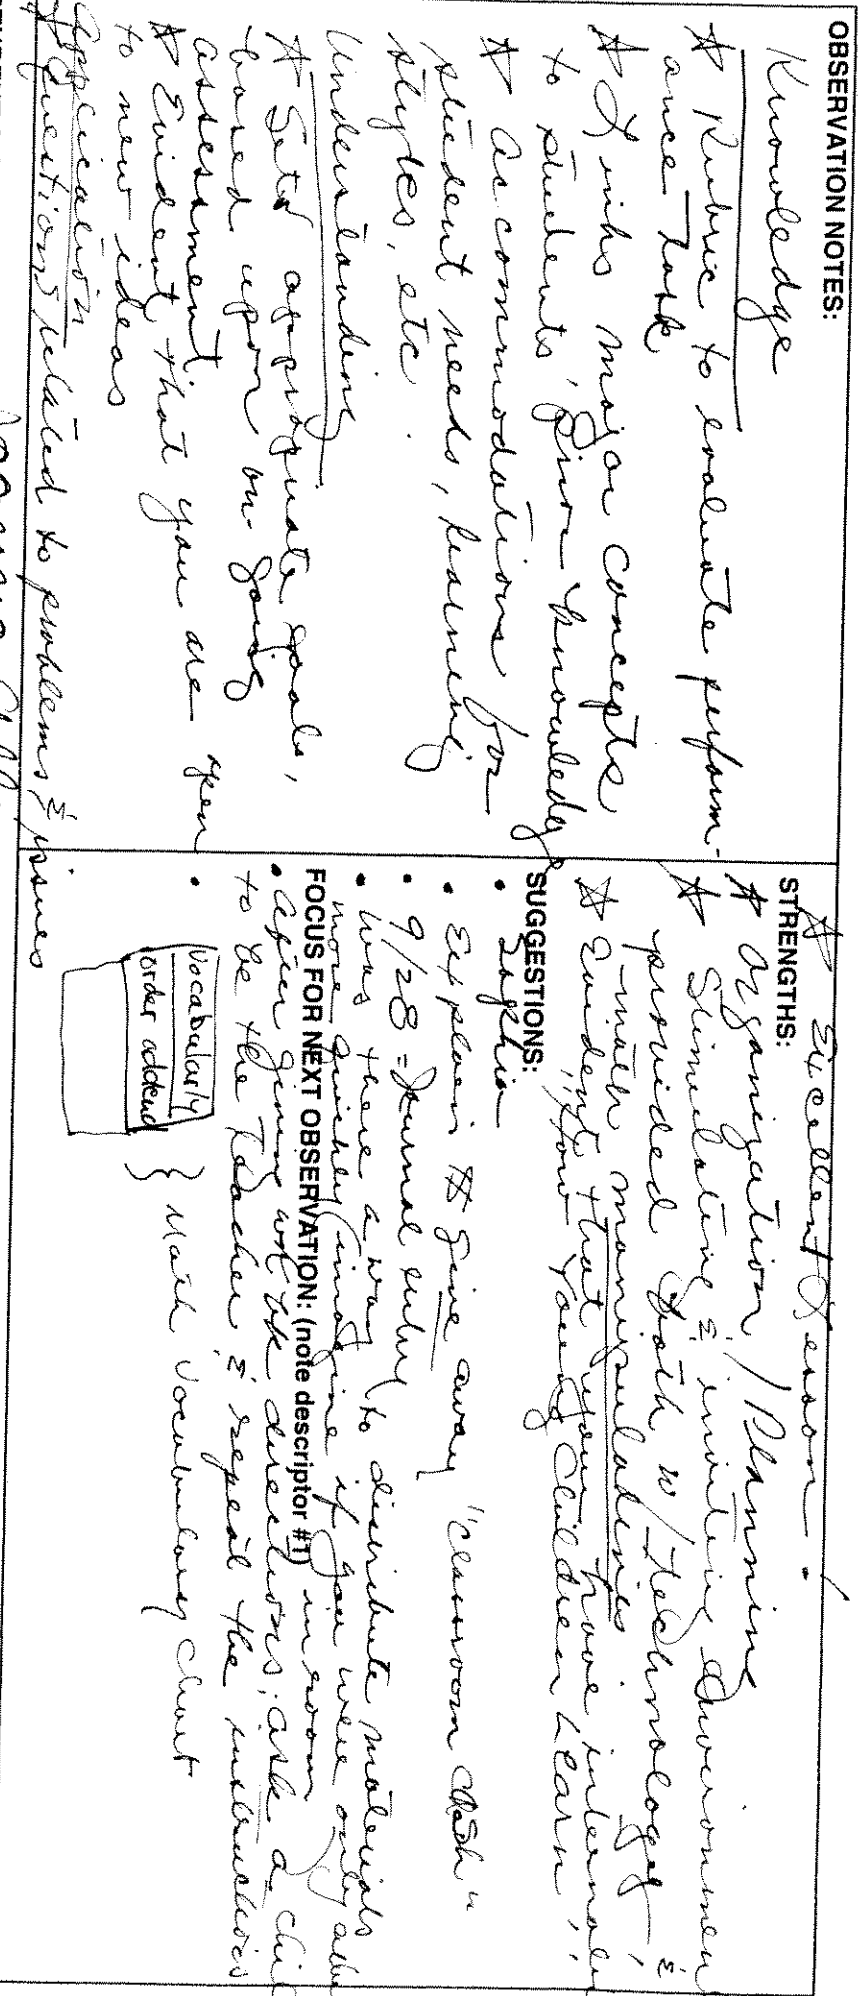 OBSERVATION NOTES:
Knowledge
☆ Rubric to evaluate perform-
ance task
☆ Links major concepts
to students' prior knowledge
☆ accommodations for
student needs, learning
styles, etc.
Understanding
☆ Sets appropriate goals,
based upon on going
assessment
☆ Evident that you are open
to new ideas
Application
☆ Questions related to problems & issues
☆ Excellent Lesson!
STRENGTHS:
☆ Organization / Planning
☆ Stimulating & inviting environment
provided both w/ technology &
math manipulatives
☆ Evident that you have internal
"How Young Children Learn"
SUGGESTIONS:
• Sophia
• Explain to give away "classroom cash"
• 9/28 = Journal entry
• Was there a way to distribute materials
more quickly (imagine if you were only
in room
FOCUS FOR NEXT OBSERVATION: (note descriptor #1)
• After giving directions, ask a chi
to be the teacher & repeat the instructions
• Vocabularly
order addend
} Math Vocabulary Chart